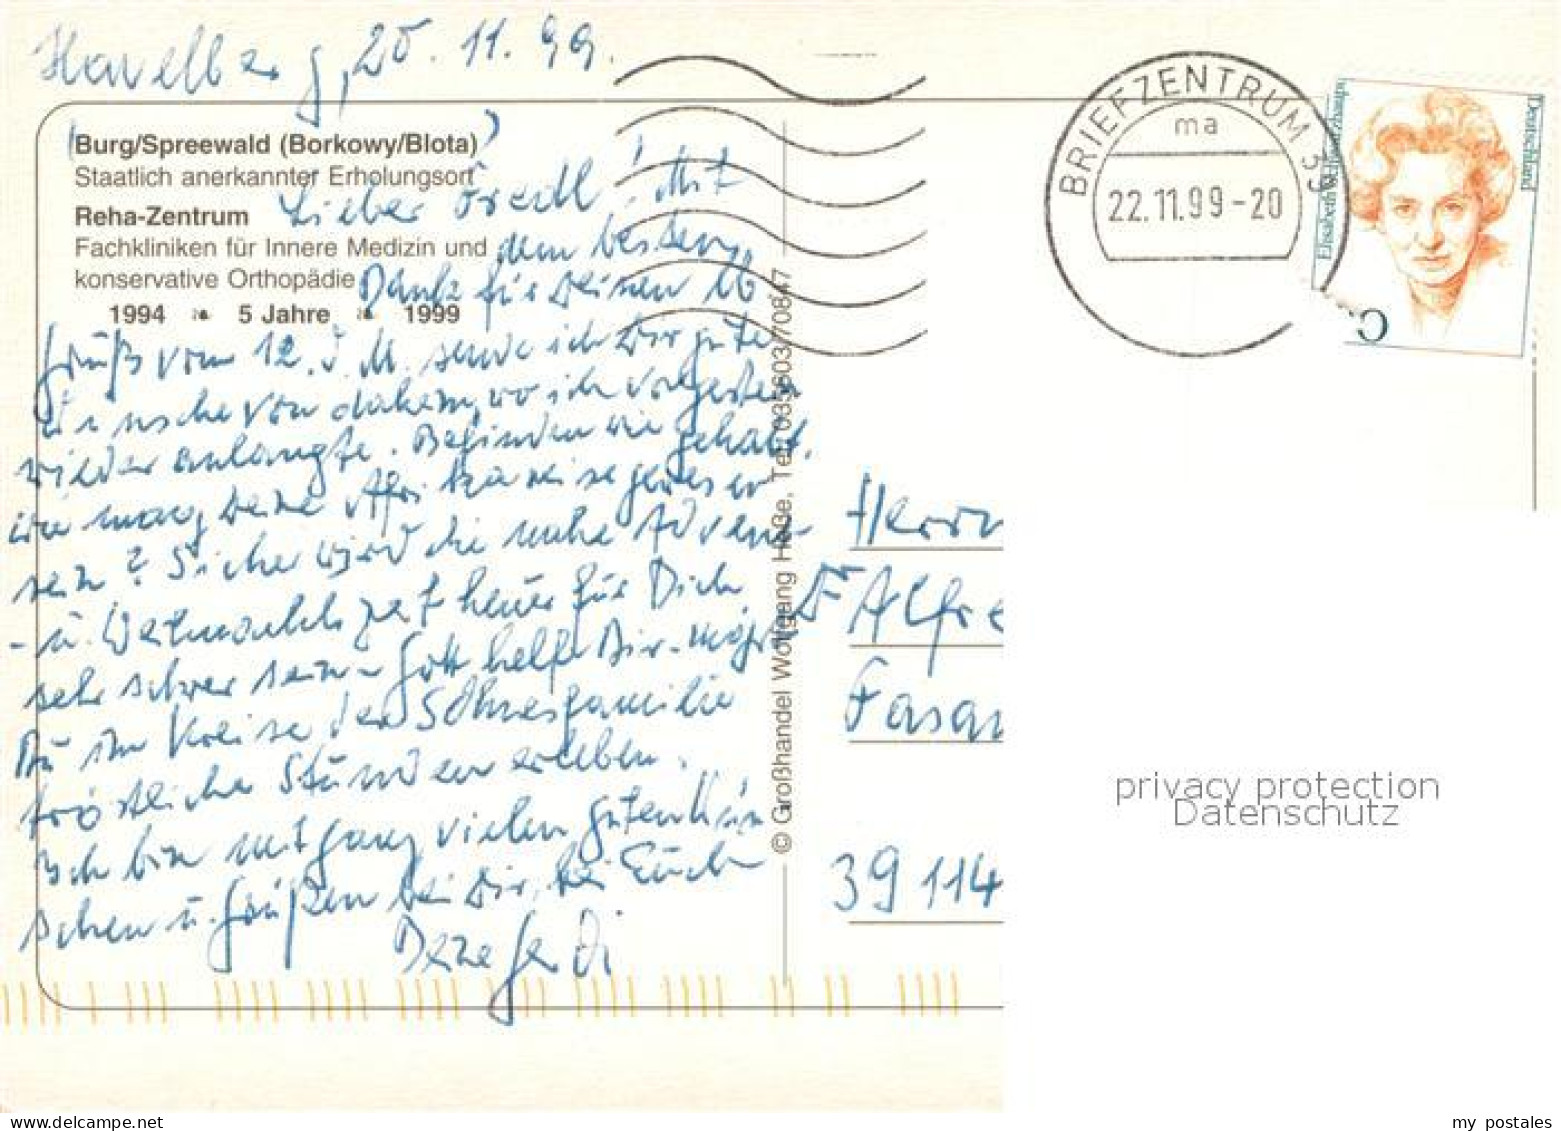 Havelberg, 20.11.99.
Burg/Spreewald (Borkowy/Blota)
Staatlich anerkannter Erholungsort
Reha-Zentrum
Fachkliniken für Innere Medizin und
konservative Orthopädie
1994 5 Jahre 1999
Lieber Fredl! Mit
dem besten
Dank für Deinen lb
Gruß vom 12. d. M. sende ich Dir gute
Wünsche von daheim, wo ich vorgestern
wieder anlangte. Befinden wie gehabt.
Wie mag Deine Afrikareise gewesen
sein? Sicher wird die nahe Advents-
- u. Weihnachtszeit heuer für Dich
sehr schwer sein - Gott helfe Dir. mögest
Du im Kreise der Sohnesfamilie
tröstliche Stunden erleben.
Ich bin mit ganz vielen guten Wün
schen u. Grüßen bei Dir, bei Euch
Deine Gerdi
© Großhandel Wolfgang Heße, Tel. 035603/70847
BRIEFZENTRUM 39
ma
22.11.99-20
Deutschland
Elisabeth Schwarzhaupt
Herrn
Dr Alfre
Fasan
39114
privacy protection
Datenschutz
my postales